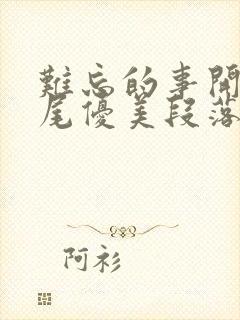 難忘的事開
尾優美段落
阿衫